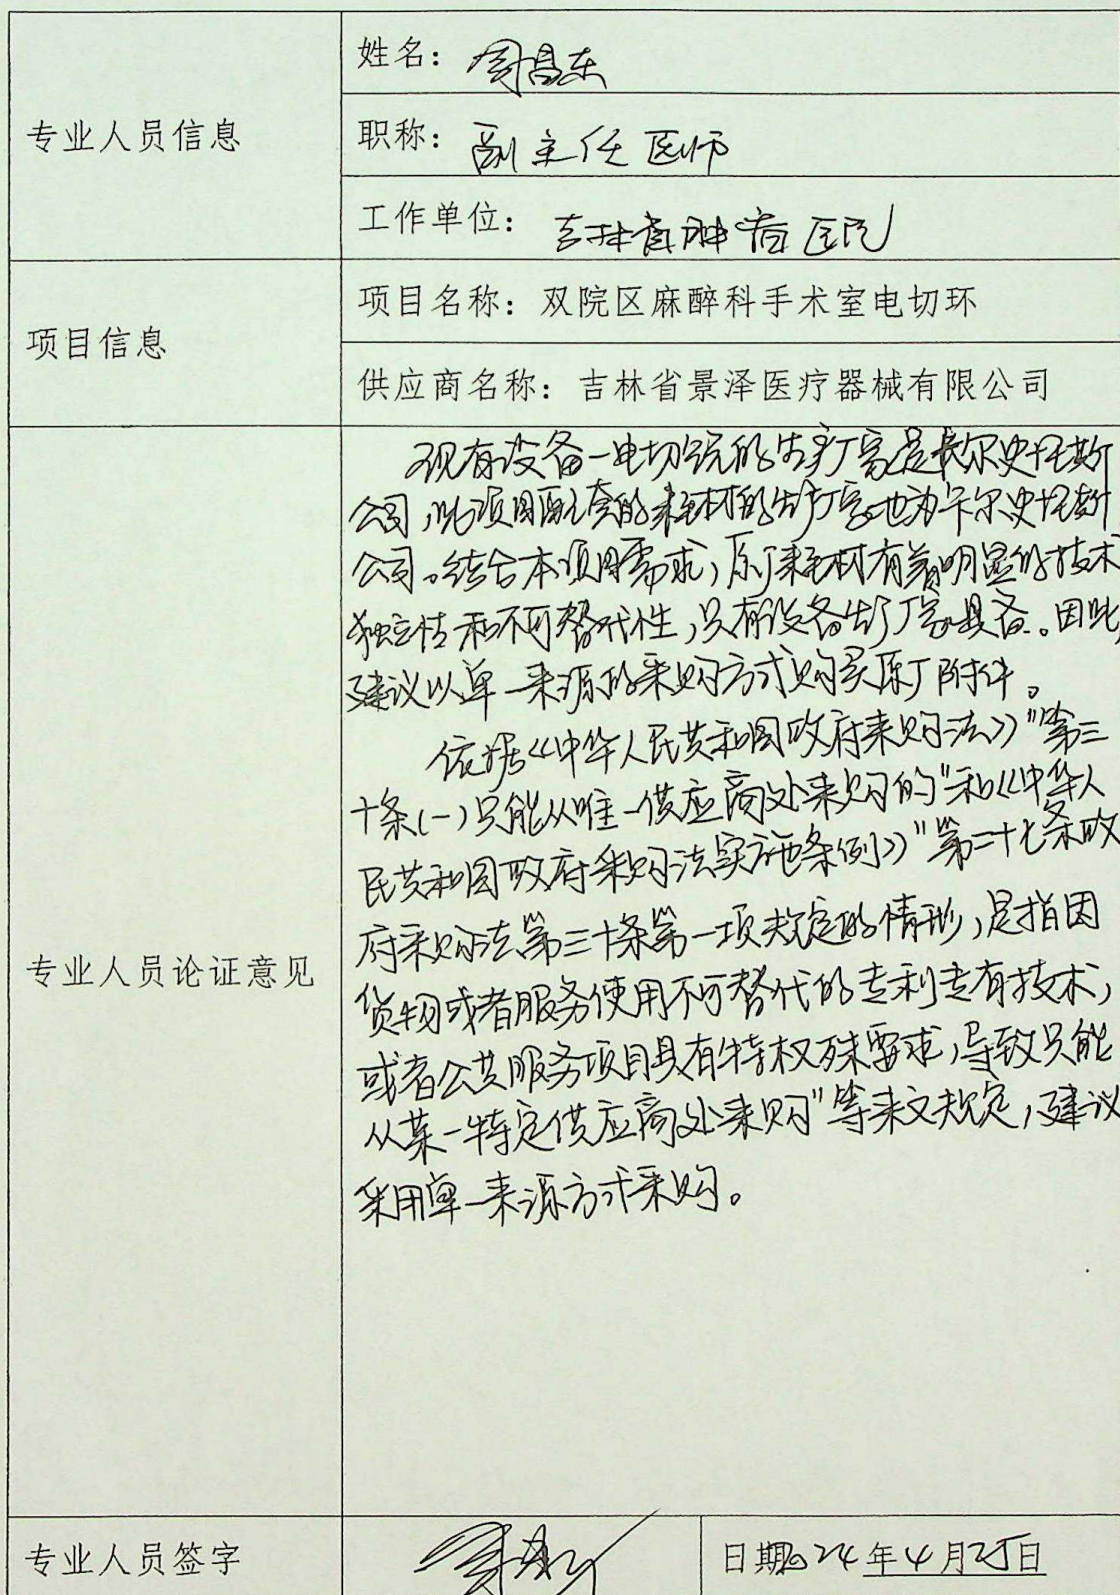 专业人员信息
姓名：周昌东
职称：副主任医师
工作单位：吉林省肿瘤医院
项目信息
项目名称：双院区麻醉科手术室电切环
供应商名称：吉林省景泽医疗器械有限公司
专业人员论证意见
现有设备一电切镜的生产厂家是卡尔史托斯
公司，此项目配套的耗材的生产厂家也为卡尔史托斯
公司。结合本项目需求，原厂耗材有着明显的技术
独立性和不可替代性，只有设备生产厂家具备。因此，
建议以单一来源的采购方式购买原厂附件。
依据《中华人民共和国政府采购法》"第三
十条(一)只能从唯一供应商处采购的"和《中华人
民共和国政府采购法实施条例》"第二十七条政
府采购法第三十条第一项规定的情形，是指因
货物或者服务使用不可替代的专利专有技术，
或者公共服务项目具有特权殊要求，导致只能
从某一特定供应商处采购"等来文规定，建议
采用单一来源方式采购。
专业人员签字
日期2024年4月25日